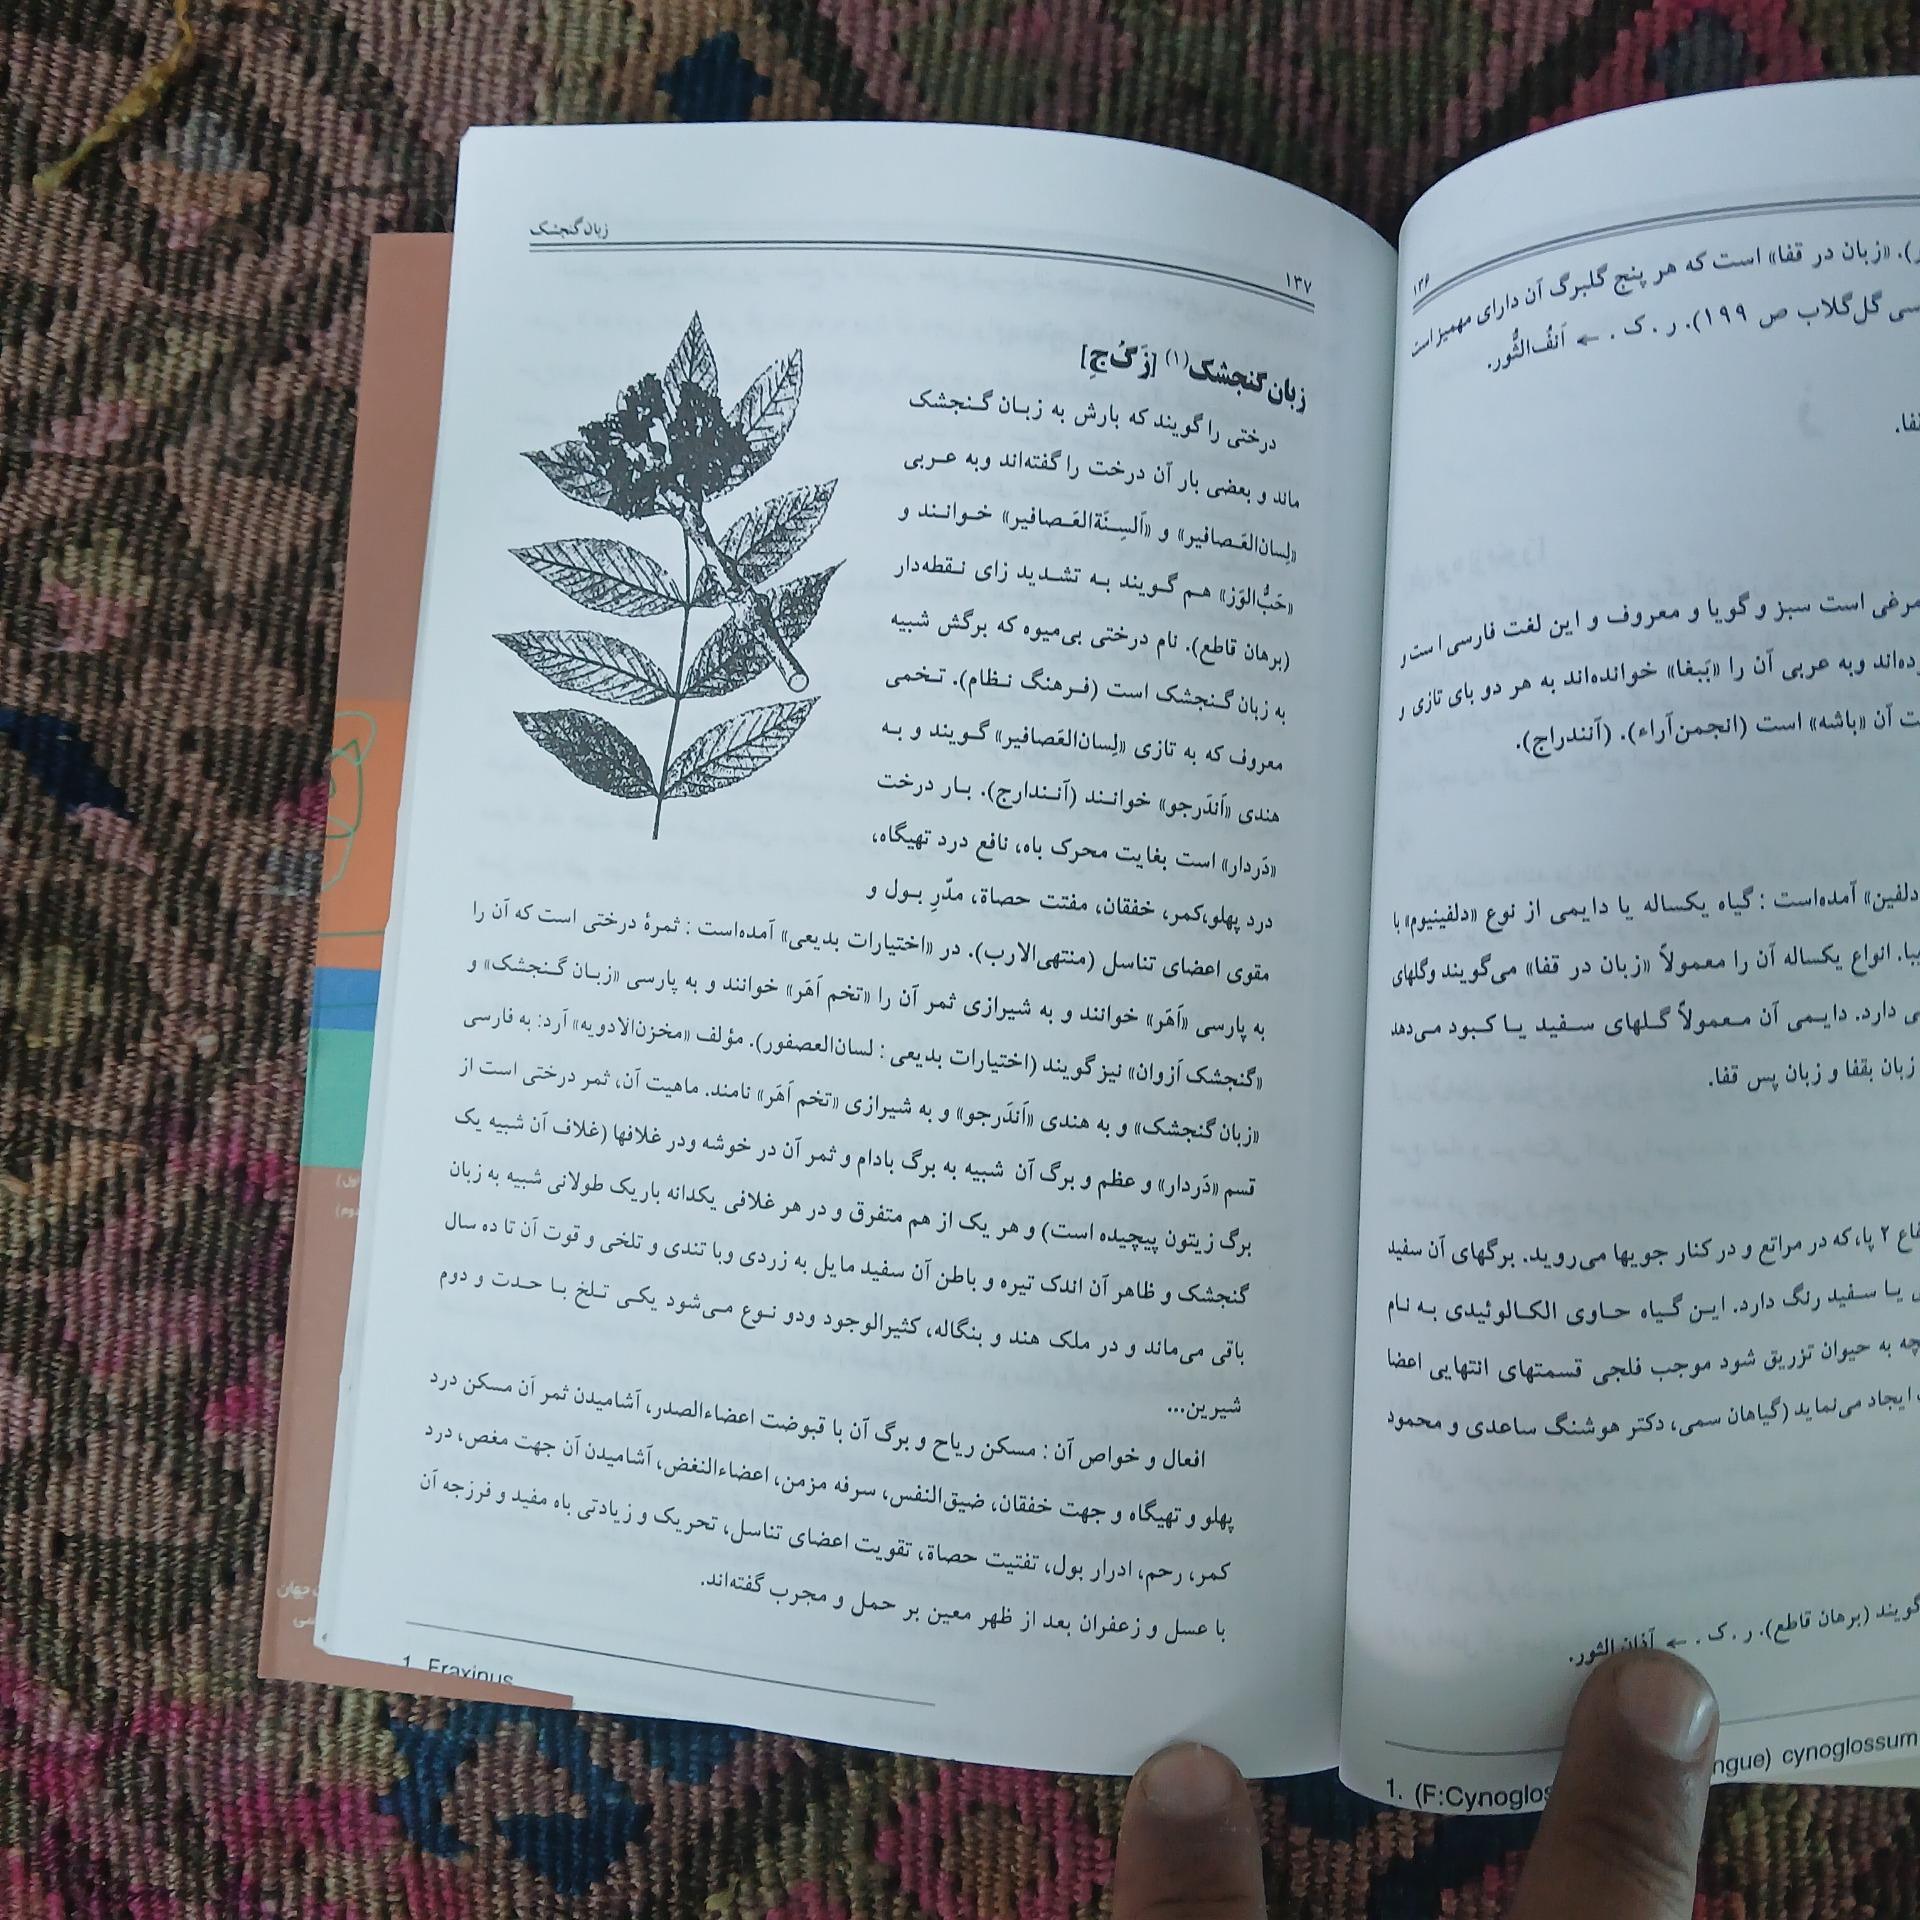 زبان گنجشک
۱۳۷
زبان گنجشک(۱) [زَ گُ جِ]
درختی را گویند که بارش به زبان گنجشک
ماند و بعضی بار آن درخت را گفته‌اند وبه عربی
«لِسان‌العَصافیر» و «اَلسِنَةالعَصافیر» خوانند و
«حَبُّ‌الوَز» هم گویند به تشدید زای نقطه‌دار
(برهان قاطع). نام درختی بی‌میوه که برگش شبیه
به زبان گنجشک است (فرهنگ نظام). تخمی
معروف که به تازی «لِسان‌العَصافیر» گویند و به
هندی «اَندَرجو» خوانند (آنندارج). بار درخت
«دَردار» است بغایت محرک باه، نافع درد تهیگاه،
درد پهلو،کمر، خفقان، مفتت حصاة، مدّرِ بول و
مقوی اعضای تناسل (منتهی‌الارب). در «اختیارات بدیعی» آمده‌است : ثمرهٔ درختی است که آن را
به پارسی «اَهَر» خوانند و به شیرازی ثمر آن را «تخم اَهَر» خوانند و به پارسی «زبان گنجشک» و
«گنجشک اَزوان» نیز گویند (اختیارات بدیعی : لسان‌العصفور). مؤلف «مخزن‌الادویه» آرد: به فارسی
«زبان گنجشک» و به هندی «اَندَرجو» و به شیرازی «تخم اَهَر» نامند. ماهیت آن، ثمر درختی است از
قسم «دَردار» و عظم و برگ آن شبیه به برگ بادام و ثمر آن در خوشه ودر غلافها (غلاف آن شبیه یک
برگ زیتون پیچیده است) و هر یک از هم متفرق و در هر غلافی یکدانه باریک طولانی شبیه به زبان
گنجشک و ظاهر آن اندک تیره و باطن آن سفید مایل به زردی وبا تندی و تلخی و قوت آن تا ده سال
باقی می‌ماند و در ملک هند و بنگاله، کثیرالوجود ودو نوع می‌شود یکی تلخ با حدت و دوم
شیرین...
افعال و خواص آن : مسکن ریاح و برگ آن با قبوضت اعضاءالصدر، آشامیدن ثمر آن مسکن درد
پهلو و تهیگاه و جهت خفقان، ضیق‌النفس، سرفه مزمن، اعضاءالنغض، آشامیدن آن جهت مغص، درد
کمر، رحم، ادرار بول، تفتیت حصاة، تقویت اعضای تناسل، تحریک و زیادتی باه مفید و فرزجه آن
با عسل و زعفران بعد از ظهر معین بر حمل و مجرب گفته‌اند.
1. Fraxinus
۱۳۶
«زبان در قفا» است که هر پنج گلبرگ آن دارای مهمیز است
گل‌گلاب ص ۱۹۹). ر . ک . ← آنفُ‌الثُّور.
مرغی است سبز و گویا و معروف و این لغت فارسی است و
وبه عربی آن را «بَبغا» خوانده‌اند به هر دو بای تازی و
آن «باشه» است (انجمن‌آراء). (آنندراج).
دلفین» آمده‌است : گیاه یکساله یا دایمی از نوع «دلفینیوم» با
انواع یکساله آن را معمولاً «زبان در قفا» می‌گویند وگلهای
دارد. دایمی آن معمولاً گلهای سفید یا کبود می‌دهد
زبان بقفا و زبان پس قفا.
۲ پا،که در مراتع و در کنار جویها می‌روید. برگهای آن سفید
یا سفید رنگ دارد. این گیاه حاوی الکالوئیدی به نام
به حیوان تزریق شود موجب فلجی قسمتهای انتهایی اعضا
ایجاد می‌نماید (گیاهان سمی، دکتر هوشنگ ساعدی و محمود
گویند (برهان قاطع). ر . ک . ← آذان الثور.
1. (F:Cynoglos ngue) cynoglossum
جهان